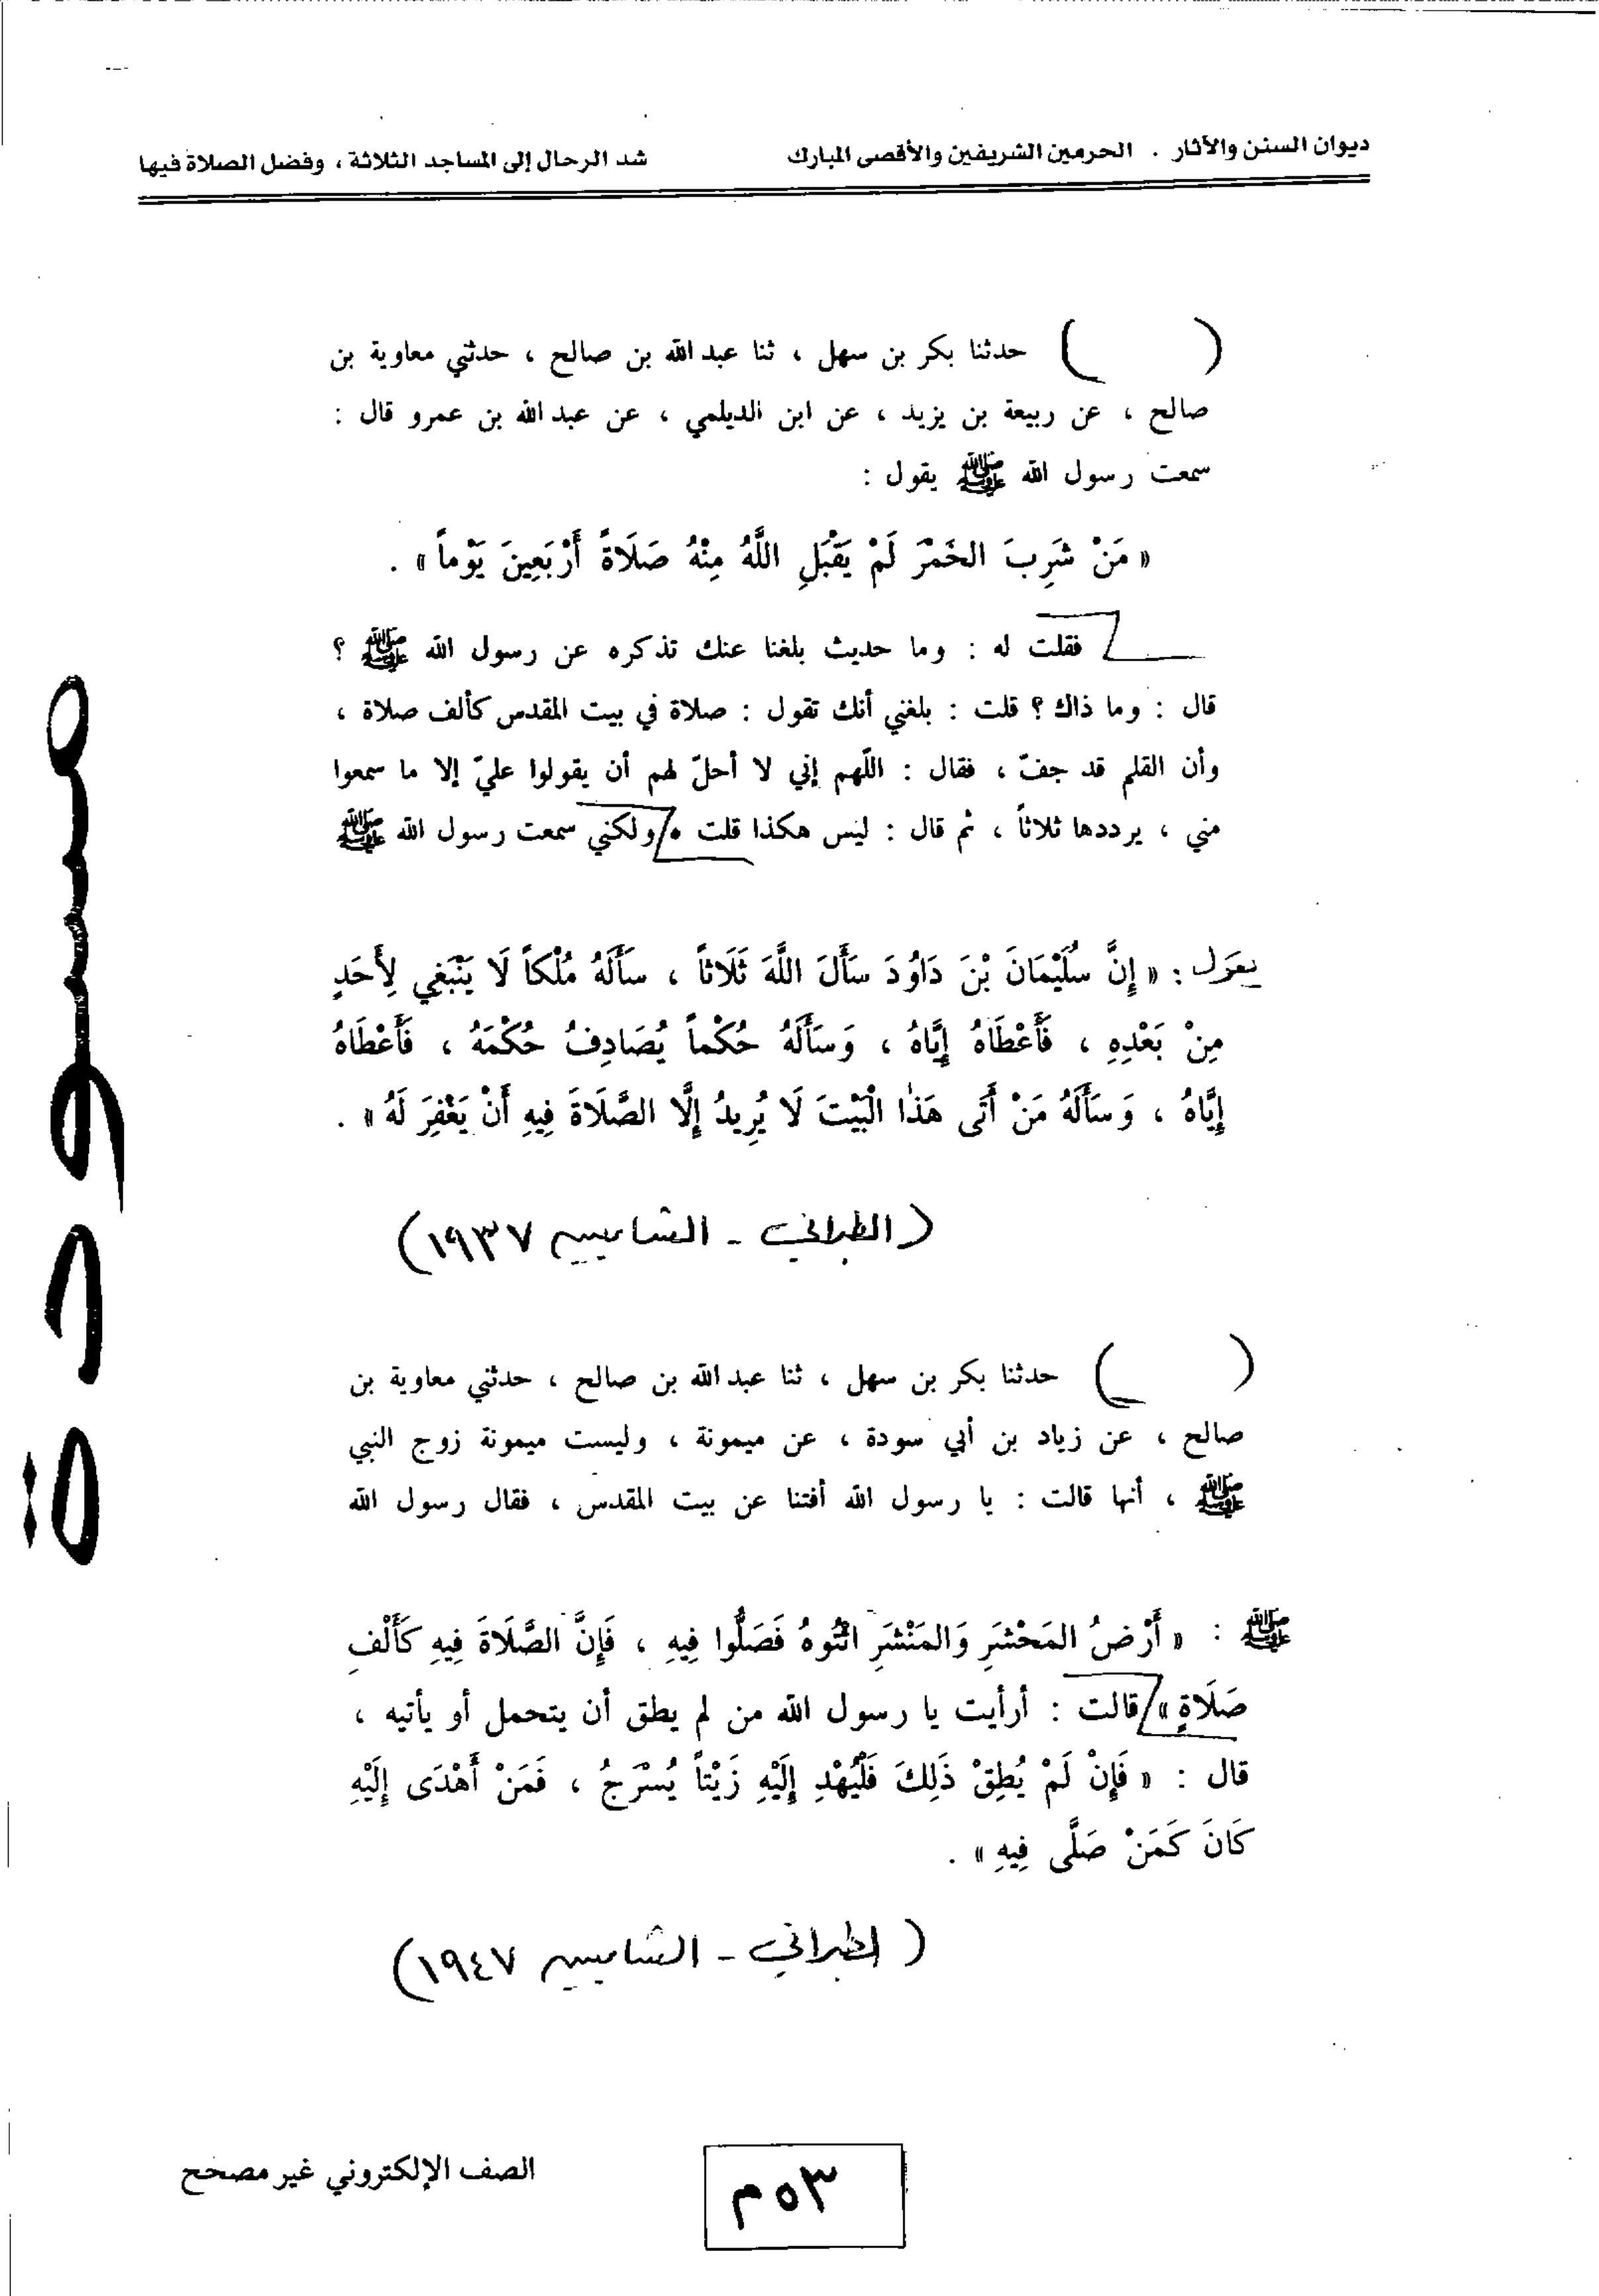 ديوان السنن والآثار . الحرمين الشريفين والأقصى المبارك شد الرحال إلى المساجد الثلاثة ، وفضل الصلاة فيها
( ) حدثنا بكر بن سهل ، ثنا عبد الله بن صالح ، حدثني معاوية بن
صالح ، عن ربيعة بن يزيد ، عن ابن الديلمي ، عن عبد الله بن عمرو قال :
سمعت رسول الله ﷺ يقول :
« مَنْ شَرِبَ الخَمْرَ لَمْ يَقْبَلِ اللَّهُ مِنْهُ صَلَاةً أَرْبَعِينَ يَوْماً » .
فقلت له : وما حديث بلغنا عنك تذكره عن رسول الله ﷺ ؟
قال : وما ذاك ؟ قلت : بلغني أنك تقول : صلاة في بيت المقدس كألف صلاة ،
وأن القلم قد جفّ ، فقال : اللّهم إني لا أحلّ لهم أن يقولوا عليّ إلا ما سمعوا
مني ، يرددها ثلاثاً ، ثم قال : ليس هكذا قلت . ولكني سمعت رسول الله ﷺ
يقول : « إِنَّ سُلَيْمَانَ بْنَ دَاوُدَ سَأَلَ اللَّهَ ثَلَاثاً ، سَأَلَهُ مُلْكاً لَا يَنْبَغِي لِأَحَدٍ
مِنْ بَعْدِهِ ، فَأَعْطَاهُ إِيَّاهُ ، وَسَأَلَهُ حُكْماً يُصَادِفُ حُكْمَهُ ، فَأَعْطَاهُ
إِيَّاهُ ، وَسَأَلَهُ مَنْ أَتَى هَذَا الْبَيْتَ لَا يُرِيدُ إِلَّا الصَّلَاةَ فِيهِ أَنْ يَغْفِرَ لَهُ » .
( الطبراني - الشاميين ١٩٣٧ )
( ) حدثنا بكر بن سهل ، ثنا عبد الله بن صالح ، حدثني معاوية بن
صالح ، عن زياد بن أبي سودة ، عن ميمونة ، وليست ميمونة زوج النبي
ﷺ ، أنها قالت : يا رسول الله أفتنا عن بيت المقدس ، فقال رسول الله
ﷺ : « أَرْضُ المَحْشَرِ وَالمَنْشَرِ ائْتُوهُ فَصَلُّوا فِيهِ ، فَإِنَّ الصَّلَاةَ فِيهِ كَأَلْفِ
صَلَاةٍ » قالت : أرأيت يا رسول الله من لم يطق أن يتحمل أو يأتيه ،
قال : « فَإِنْ لَمْ يُطِقْ ذَلِكَ فَلْيُهْدِ إِلَيْهِ زَيْتاً يُسْرَجُ ، فَمَنْ أَهْدَى إِلَيْهِ
كَانَ كَمَنْ صَلَّى فِيهِ » .
( الطبراني - الشاميين ١٩٤٧ )
٥٣م
الصف الإلكتروني غير مصحح
مسودة